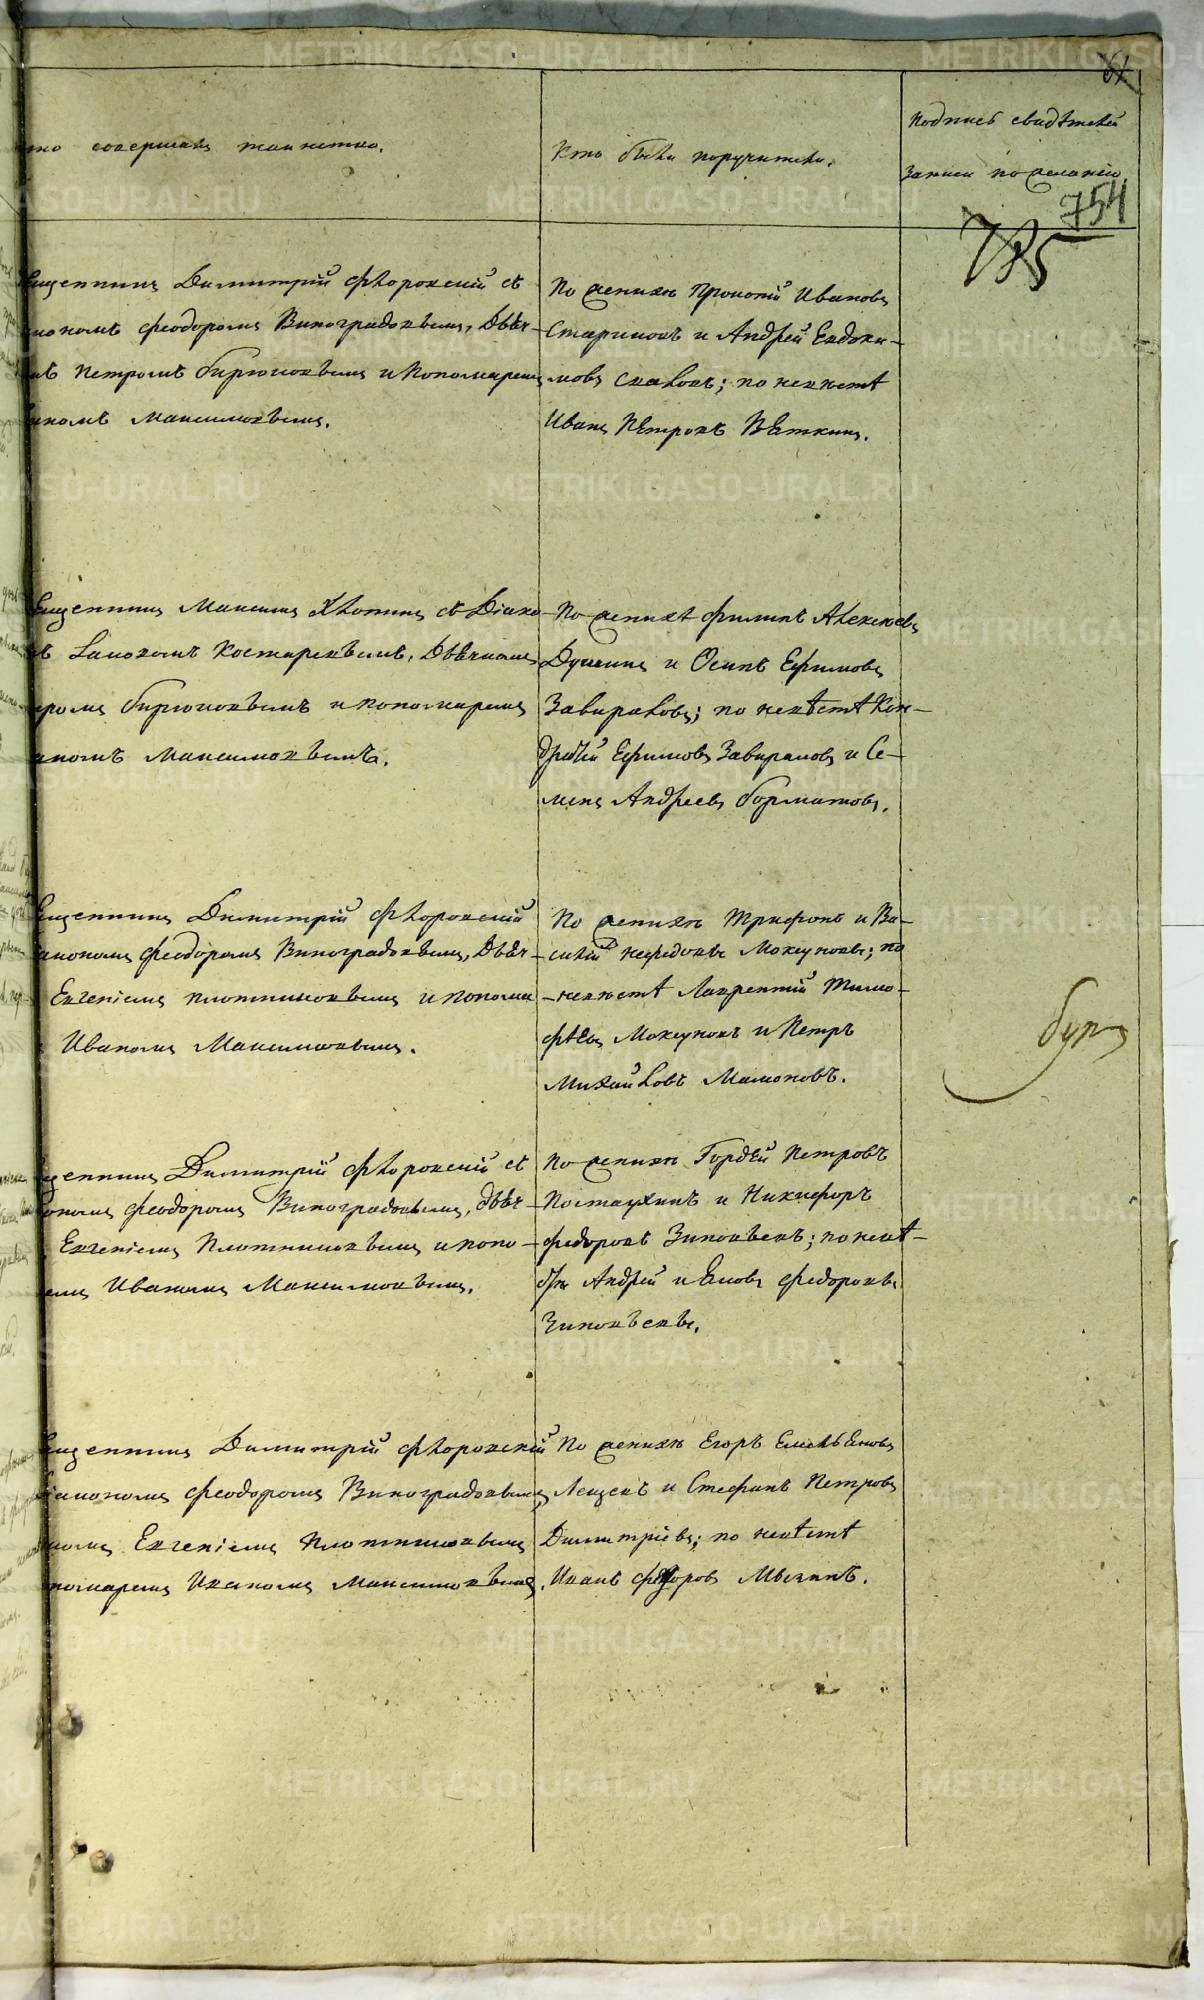 то совершалъ таинство.
Кто были поручители.
Подпись свидѣтелей
записи по желанію
754
735
вященникъ Димитрій Флоровскій съ
іакономъ Феодоромъ Виноградовымъ, Дьяч-
мъ Петромъ Бирюковымъ и Пономаремъ
аномъ Максимовымъ.
По женихѣ Прокопій Ивановъ
Стариковъ и Андрей Евдоки-
мовъ Скаковъ; по невѣстѣ
Иванъ Петровъ Вяткинъ.
вященникъ Максимъ Хлопинъ съ Діако-
мъ Саввою Костаревымъ, Дьячкомъ
тромъ Бирюковымъ и пономаремъ
аномъ Максимовымъ.
По женихѣ Филипъ Алексѣевъ
Душинъ и Осипъ Ефимовъ
Завираловъ; по невѣстѣ Кон-
дратій Ефимовъ Завираловъ и Се-
менъ Андреевъ Борматовъ.
вященникъ Димитрій Флоровскій
іакономъ Феодоромъ Виноградовымъ, Дьяч-
Евгеніемъ Плотниковымъ и понома
Иваномъ Максимовымъ.
По женихѣ Трифонъ и Ва-
силій Нефедовы Мокеуновы; по
невѣстѣ Лаврентій Тимо-
фѣевъ Мокеуновъ и Петръ
Михайловъ Мамоновъ.
бург
щенникъ Димитрій Флоровскій съ
ономъ Феодоромъ Виноградовымъ, Дьяч-
Евгеніемъ Плотниковымъ и поно-
емъ Иваномъ Максимовымъ.
По женихѣ Гордѣй Петровъ
Постаухинъ и Никифоръ
Федоровъ Зиновьевъ; по невѣ-
стѣ Андрей и Яковъ Федоровы
Зиновьевы.
вященникъ Димитрій Флоровскій
іакономъ Феодоромъ Виноградовымъ,
комъ Евгеніемъ Плотниковымъ
пономаремъ Иваномъ Максимовымъ.
По женихѣ Егоръ Емельяновъ
Лещевъ и Стефанъ Петровъ
Димитріевъ; по невѣстѣ
Иванъ Федоровъ Мызинъ.
METRIKI.GASO-URAL.RU